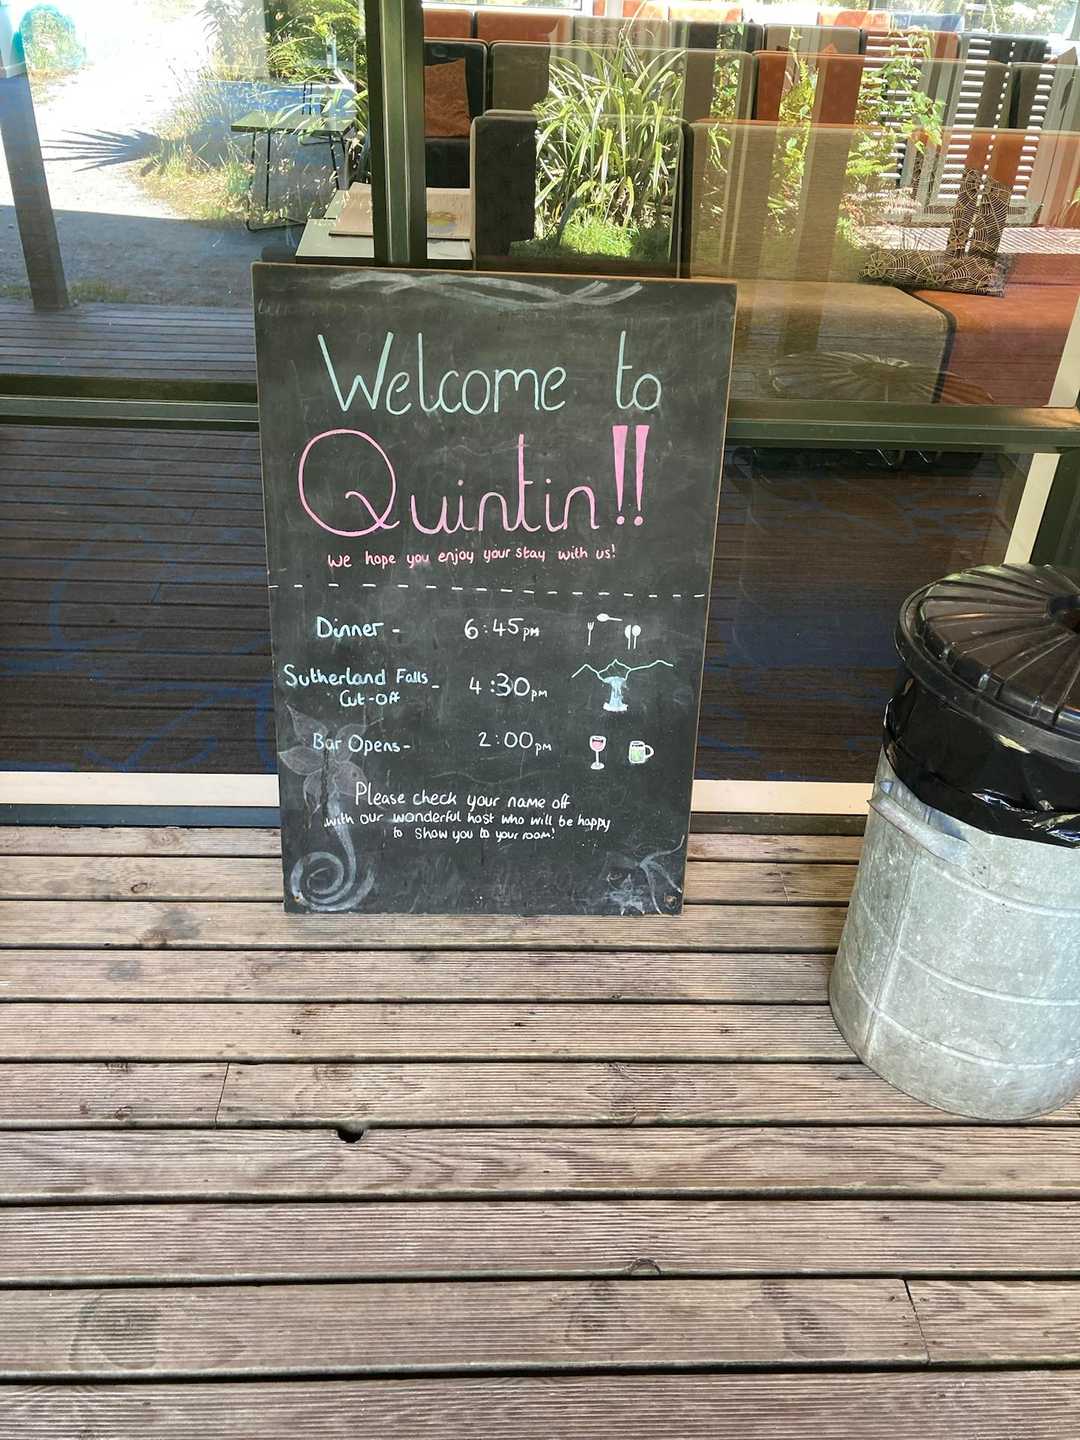 Welcome to
Quintin!!
We hope you enjoy your stay with us!
Dinner - 6:45pm
Sutherland Falls
Cut-Off - 4:30pm
Bar Opens - 2:00pm
Please check your name off
with our wonderful host who will be happy
to show you to your room!